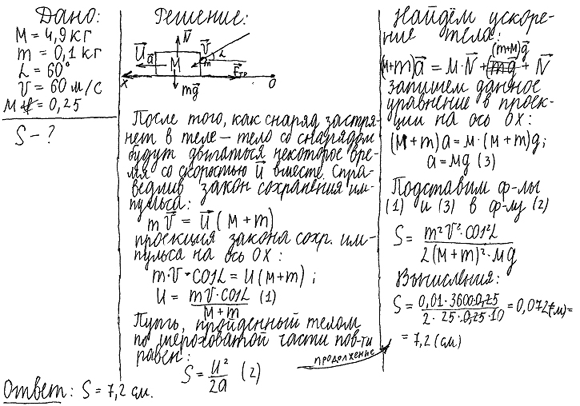 Дано:
M = 4,9 кг
m = 0,1 кг
L = 60°
V = 60 м/с
M = 0,25
S - ?
Решение:
N
U
a
M
V
m
L
Fтр
X
O
mg
После того, как снаряд застря-
нет в теле – тело со снарядом
будут двигаться некоторое вре-
мя со скоростью U вместе. Спра-
ведлив закон сохранения им-
пульса:
mV = U (M + m)
проекция закона сохр. им-
пульса на ось OX:
m·V·cosL = U (M+m) ;
U = mV·cosL / M+m (1)
Путь, пройденный телом
по шероховатой части пов-ти
равен:
S = U² / 2a (2)
продолжение
Найдём ускоре-
ние тела:
(M+m)g
(M+m)a = м·N + mg + N
запишем данное
уравнение в проек-
ции на ось OX:
(M+m)a = м·(M+m)g;
a = мg (3)
Подставим ф-лы
(1) и (3) в ф-лу (2)
S = m²V²·cos²L / 2(M+m)²·мg
Вычисления:
S = 0,01·3600·0,25 / 2·25·0,25·10 = 0,072 (м) =
= 7,2 (см)
Ответ: S = 7,2 см.